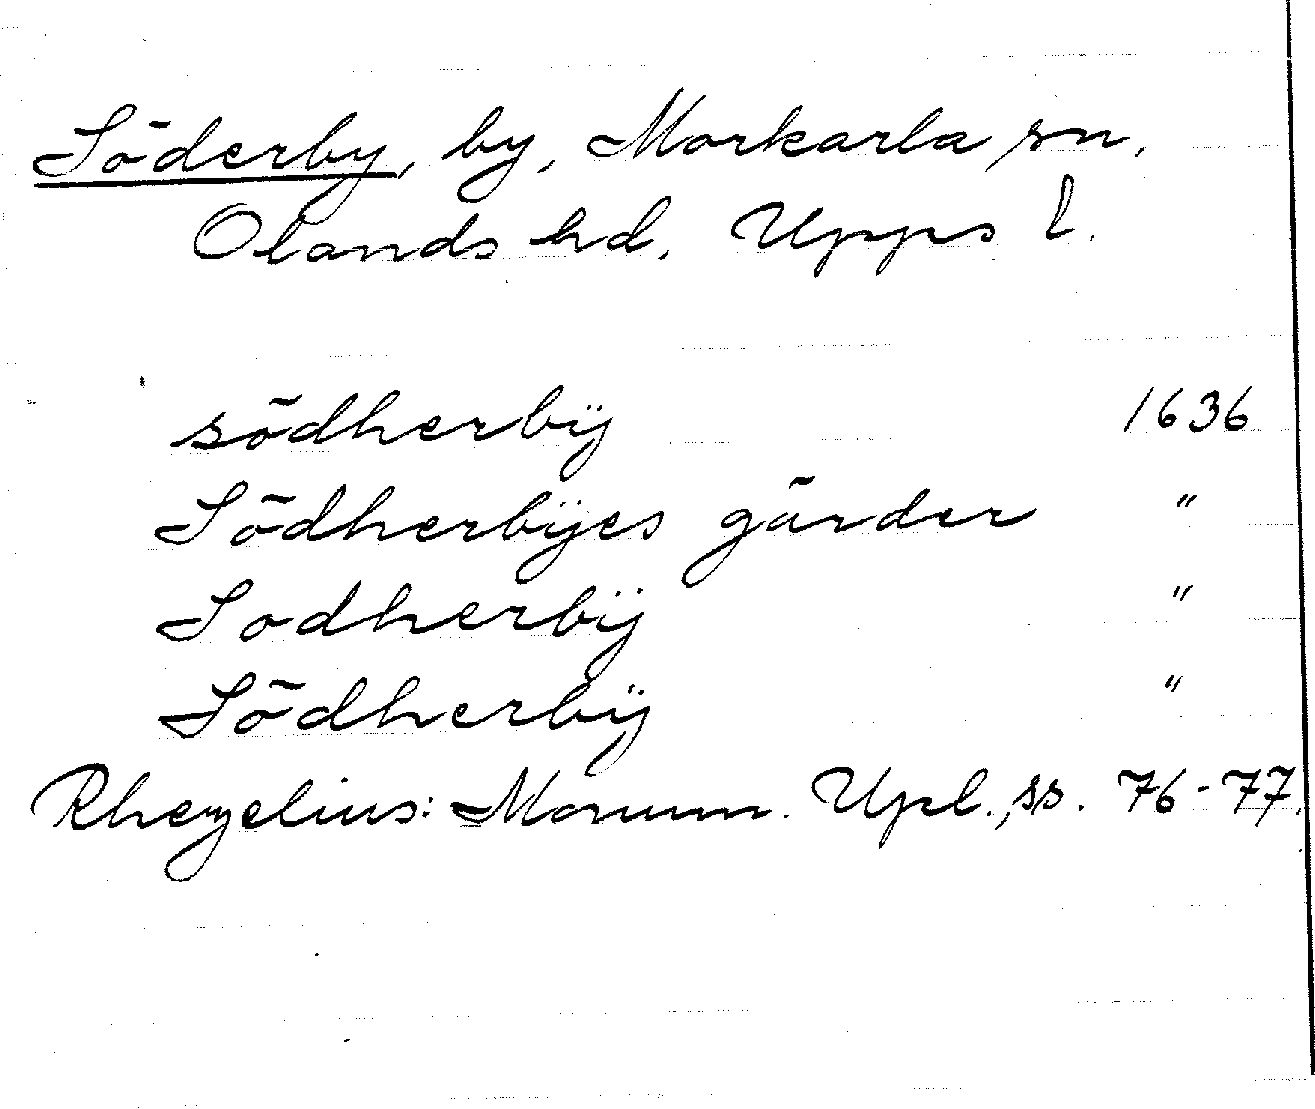 Söderby, by, Morkarla sn,
Olands hd, Upps l.
södherbÿ 1636
Södherbÿes gärder "
Sodherbÿ "
Södherbÿ "
Rhezelius: Monum. Upl., ss. 76-77.